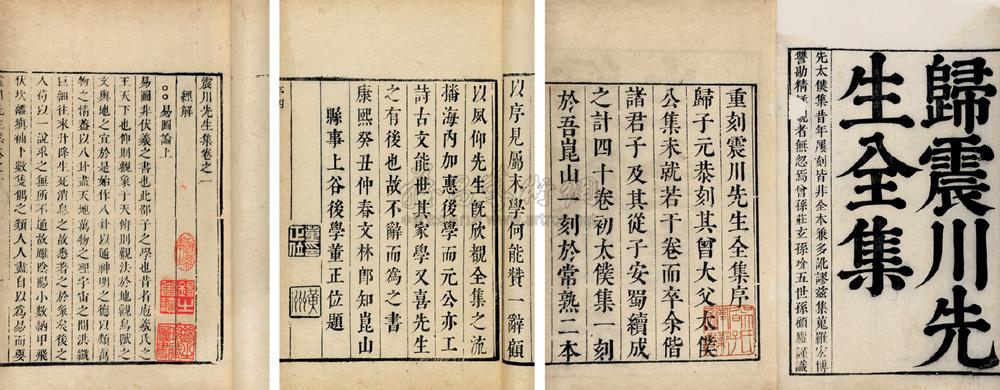 歸震川先
生全集
先太僕集昔年屢刻皆非全本兼多訛謬茲集蒐羅宏博
讐勘精
者無忽焉曾孫莊玄孫玠五世孫顧廬謹識
重刻震川先生全集序
歸子元恭刻其曾大父太僕
公集未就若干卷而卒余偕
諸君子及其從子安蜀續成
之計四十卷初太僕集一刻
於吾崑山一刻於常熟二本
以序見屬末學何能贊一辭顧
以夙仰先生旣欣觀全集之流
播海內加惠後學而元公亦工
詩古文能世其家學又喜先生
之有後也故不辭而為之書
康熙癸丑仲春文林郎知崑山
縣事上谷後學董正位題
震川先生集卷之一
經解
易圖論上
易圖非伏羲之書也此邵子之學也昔者庖羲氏之
王天下也仰則觀象于天俯則觀法於地觀鳥獸之
文與地之宜於是始作八卦以通神明之德以類萬
物之情蓋以八卦盡天地萬物之理宇宙之間洪纖
巨細往來升降生死消息之故悉著之於象矣後之
人苟以一說求之無所不通故雖陰陽小數納甲飛
伏坎離填補卜數隻偶之類人人盡自以為易而要